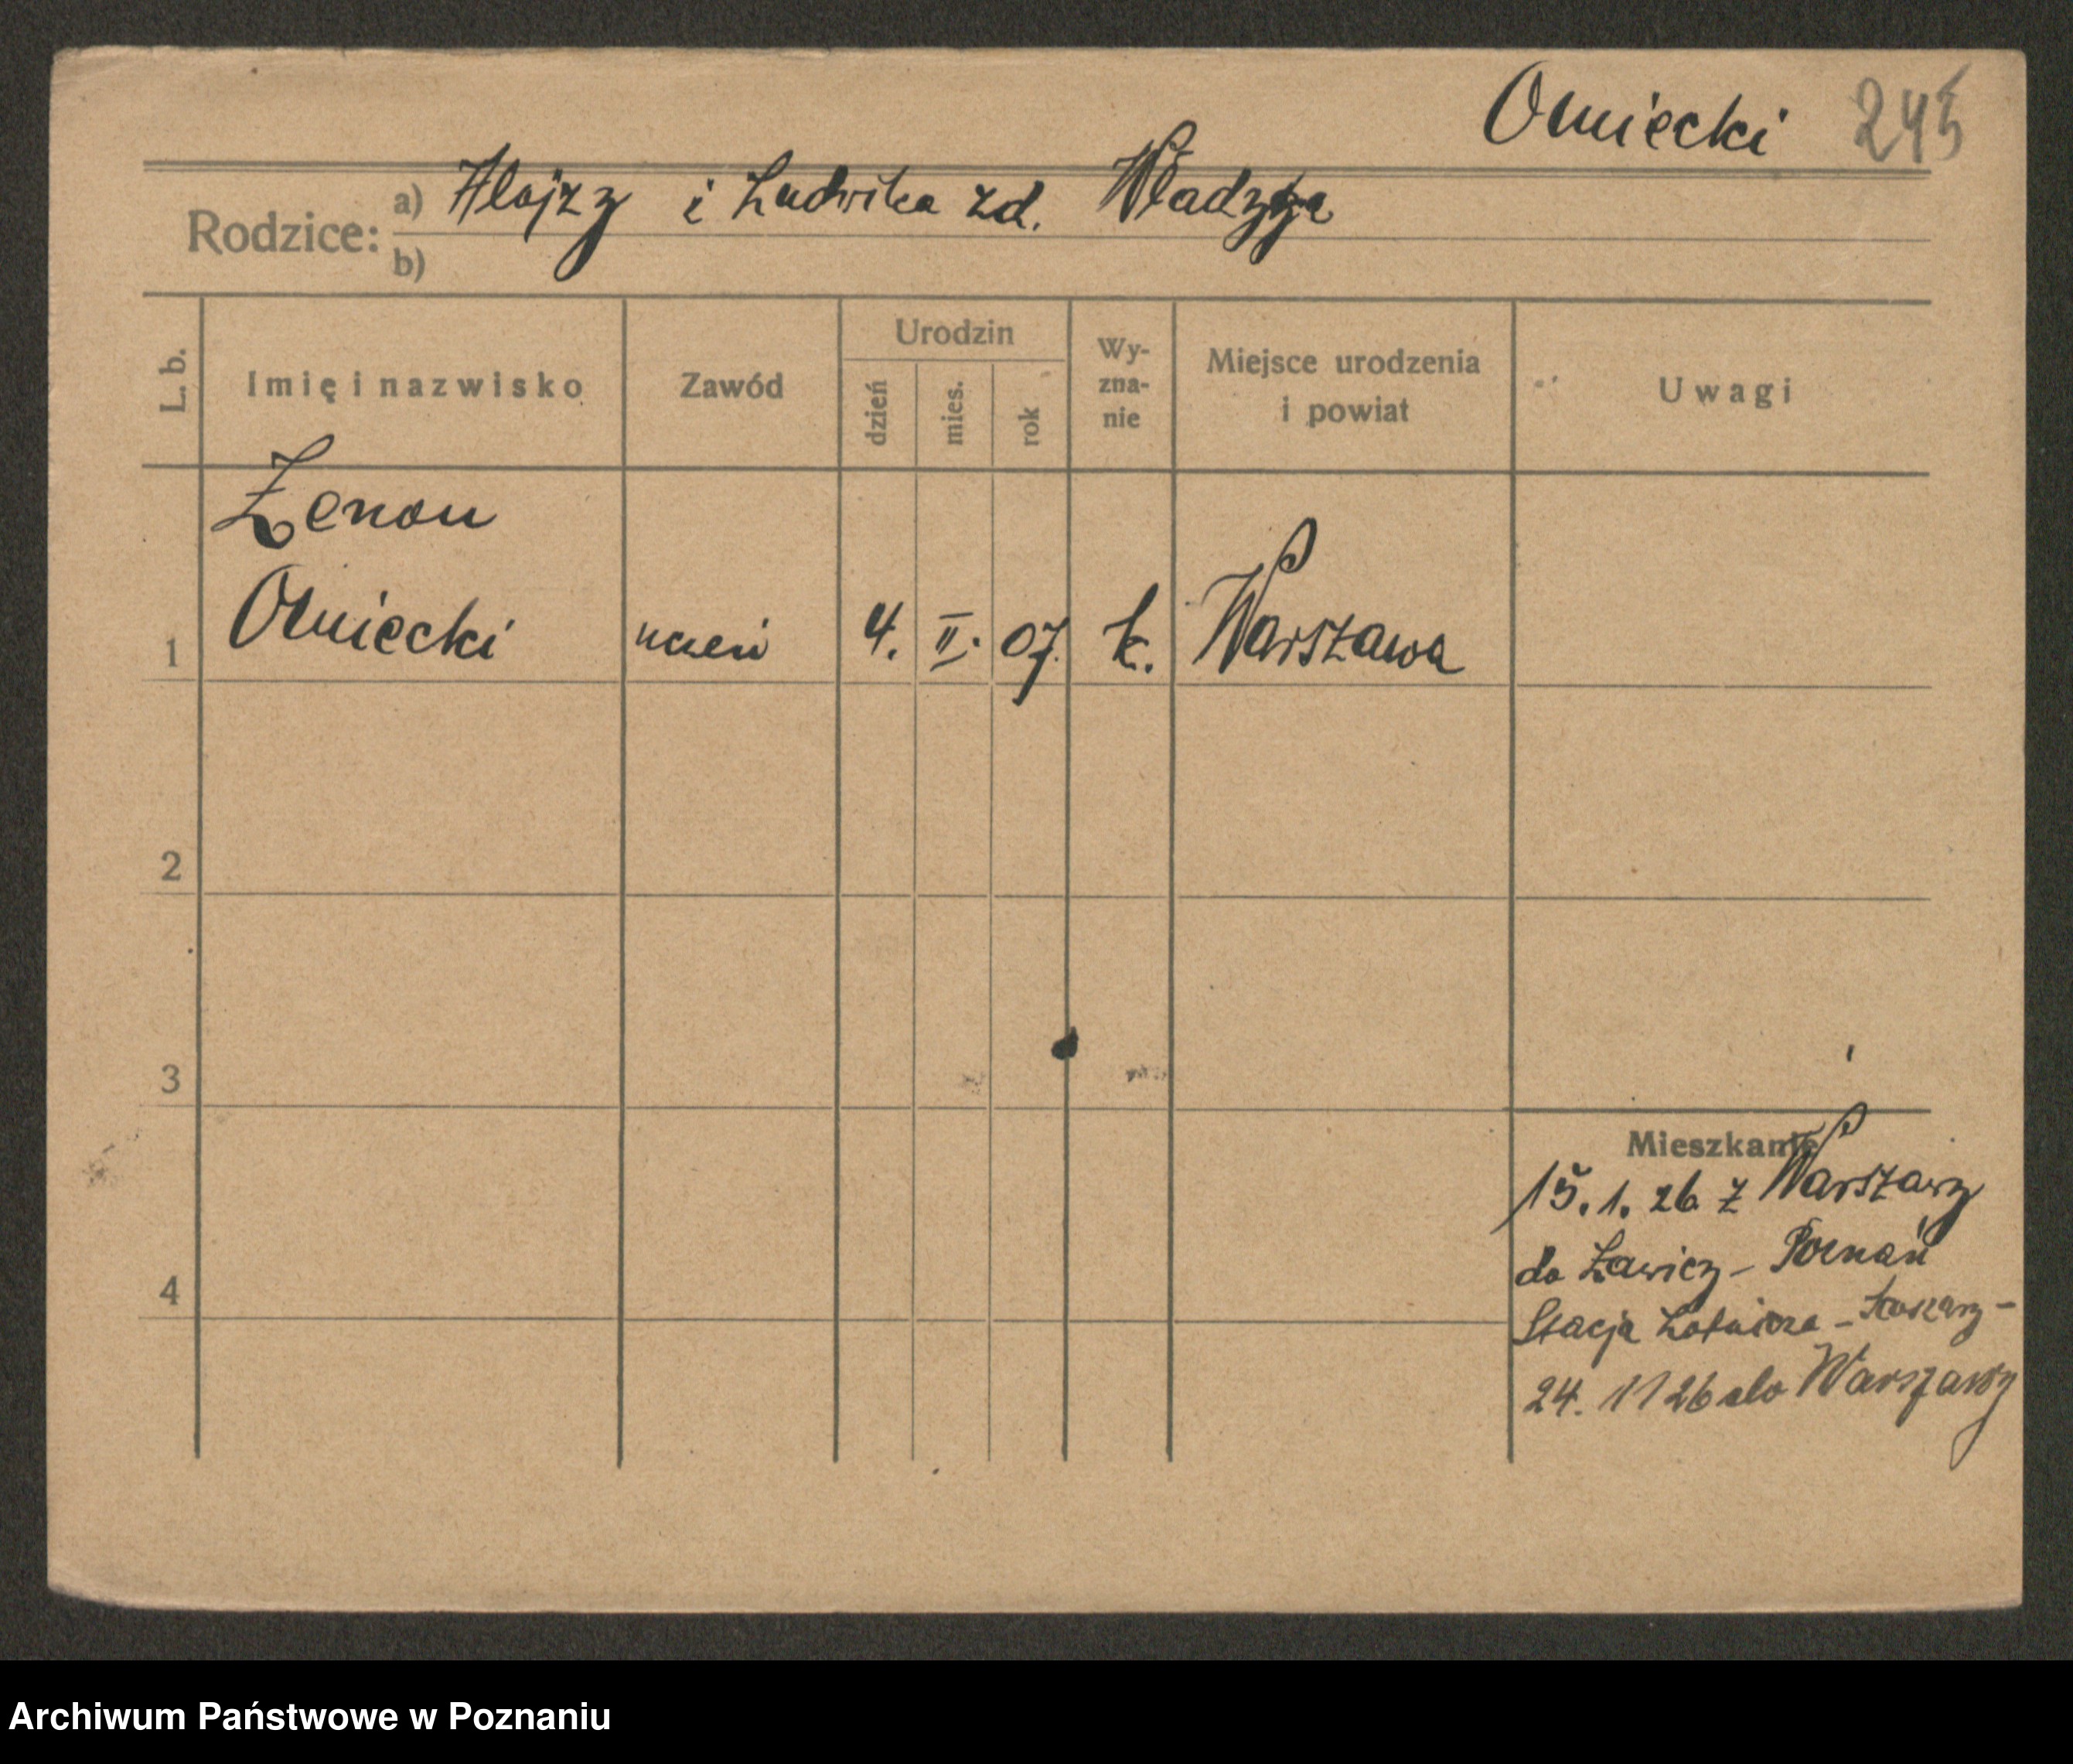 Omiecki 245
Rodzice: a) Alojzy i Ludwika zd.
b)
L. b. Imię i nazwisko Zawód Urodzin dzień mies. rok Wy-zna-nie Miejsce urodzenia i powiat Uwagi
Zenon
1 Omiecki uczeń 4. II. 07. k. Warszawa
2
3
4
Mieszkanie
15. 1. 26 z Warszawy
do Ławicy - Poznań
Stacja Lotnicza - Koszary -
24. 11 26 do Warszawy
Archiwum Państwowe w Poznaniu